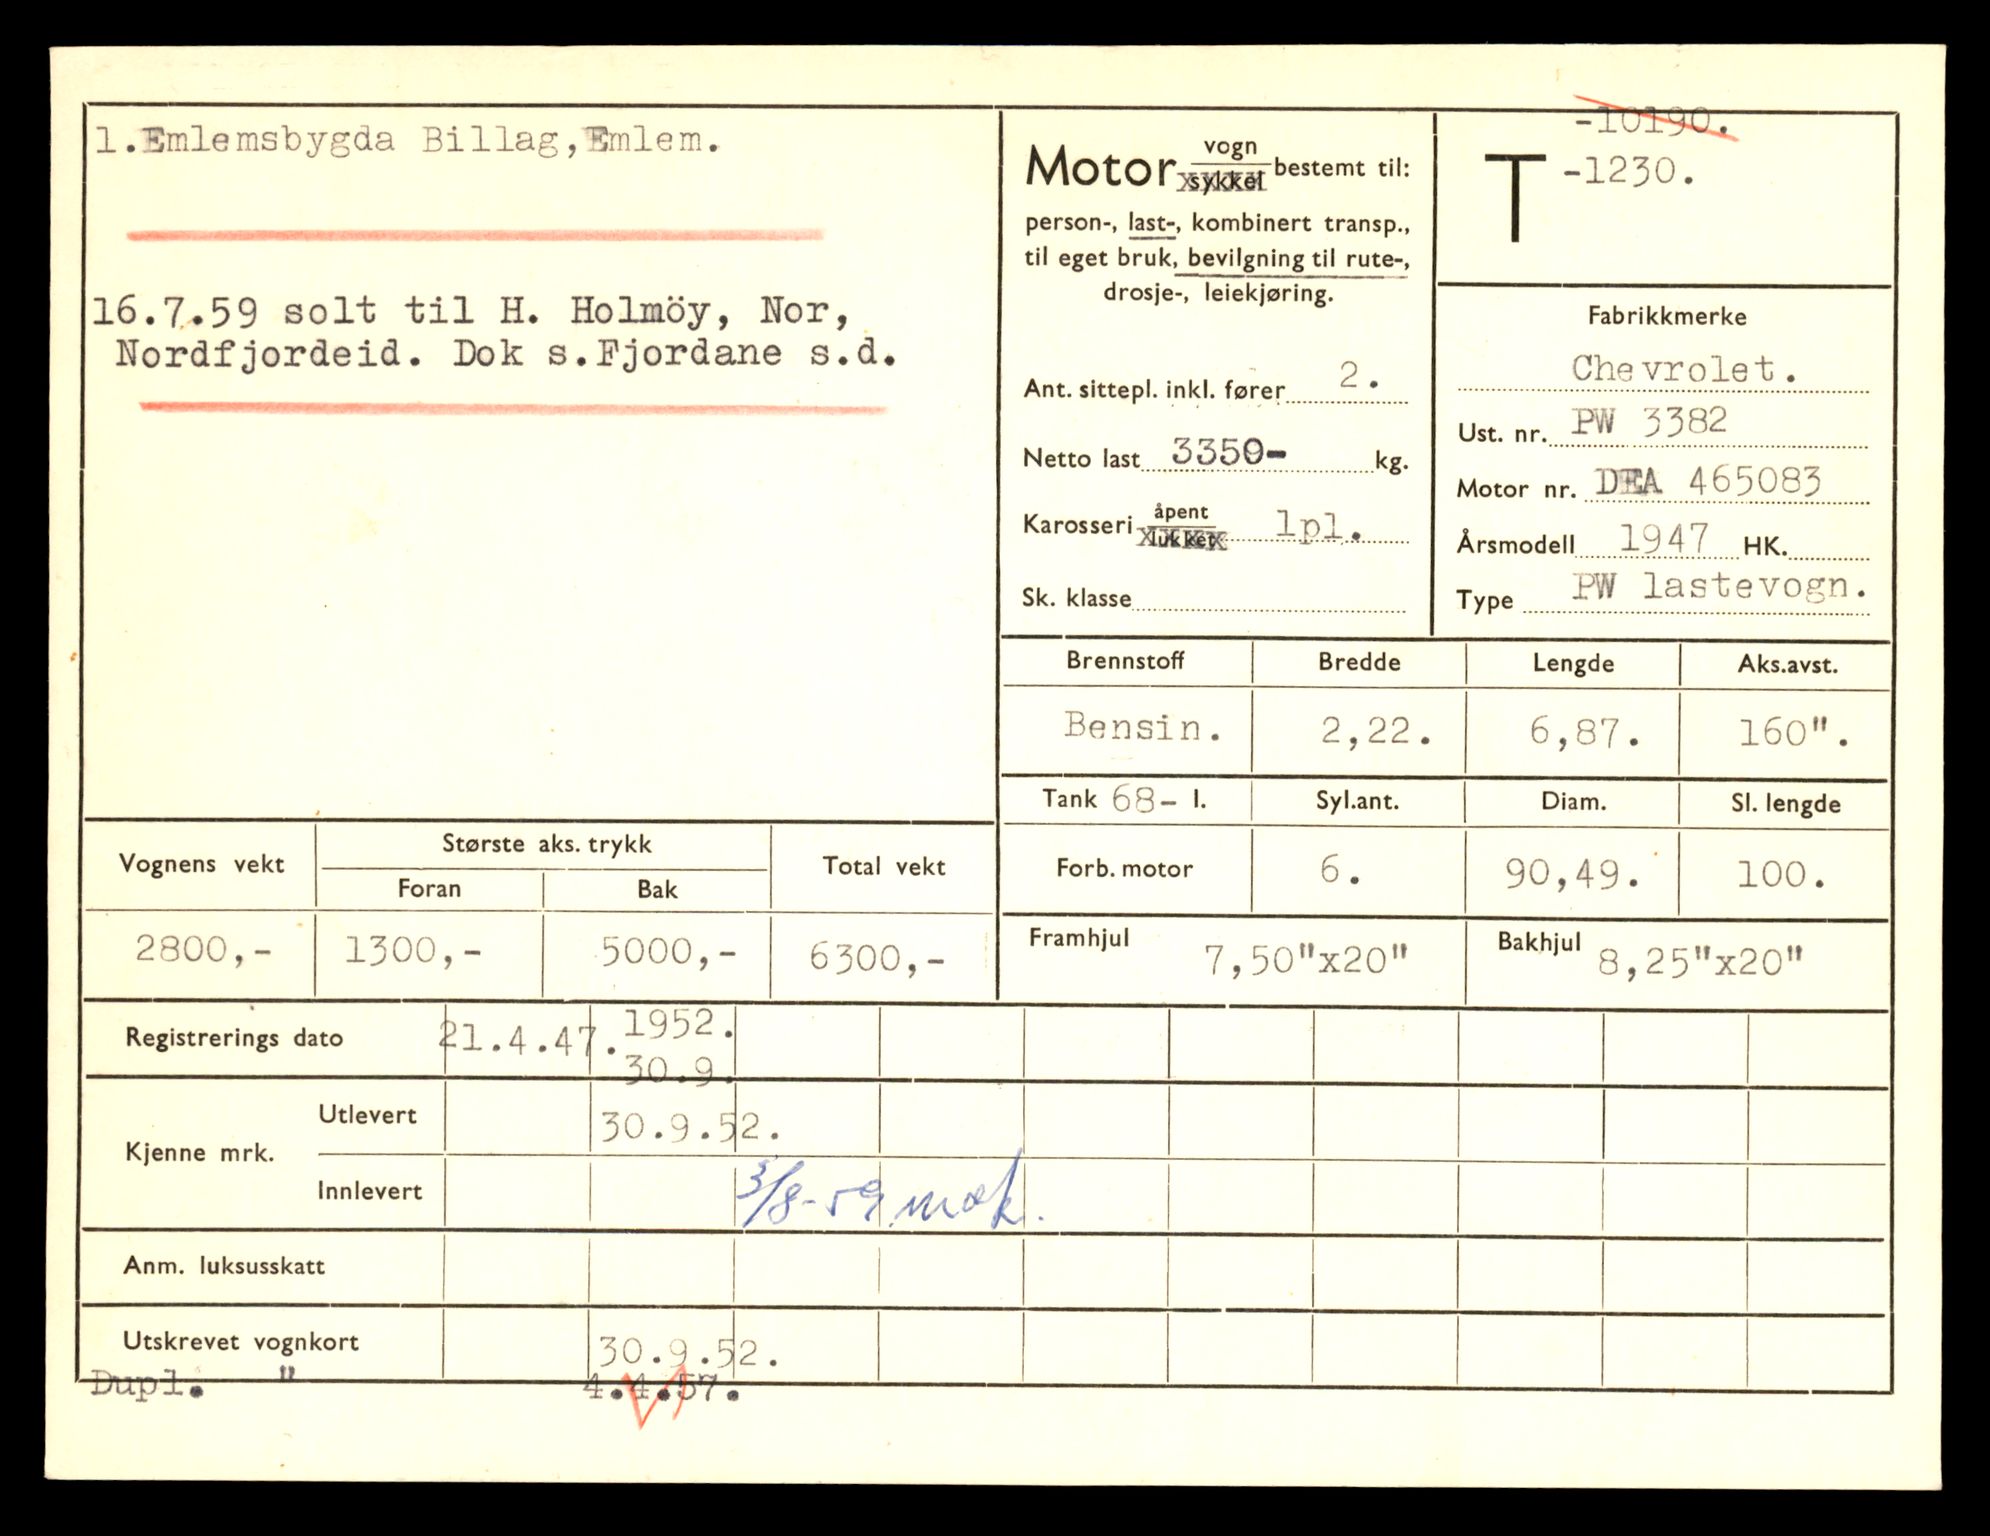 1.Emlemsbygda Billag,Emlem.
16.7.59 solt til H. Holmöy, Nor,
Nordfjordeid. Dok s.Fjordane s.d.
Motor vogn bestemt til:
sykkel
person-, last-, kombinert transp.,
til eget bruk, bevilgning til rute-,
drosje-, leiekjøring.
Ant. sittepl. inkl. fører 2.
Netto last 3350- kg.
Karosseri åpent lpl.
lukket
Sk. klasse
-10190.
T -1230.
Fabrikkmerke
Chevrolet.
Ust. nr. PW 3382
Motor nr. DEA 465083
Årsmodell 1947 HK.
Type PW lastevogn.
Brennstoff Bredde Lengde Aks.avst.
Bensin. 2,22. 6,87. 160".
Tank 68- l. Syl.ant. Diam. Sl. lengde
Forb. motor 6. 90,49. 100.
Framhjul 7,50"x20" Bakhjul 8,25"x20"
Vognens vekt Største aks. trykk Total vekt
Foran Bak
2800,- 1300,- 5000,- 6300,-
Registrerings dato 21.4.47. 1952.
30.9.
Kjenne mrk.
Utlevert 30.9.52.
Innlevert 3/8-59 mak.
Anm. luksusskatt
Utskrevet vognkort 30.9.52.
Dupl. " 4.4.57.